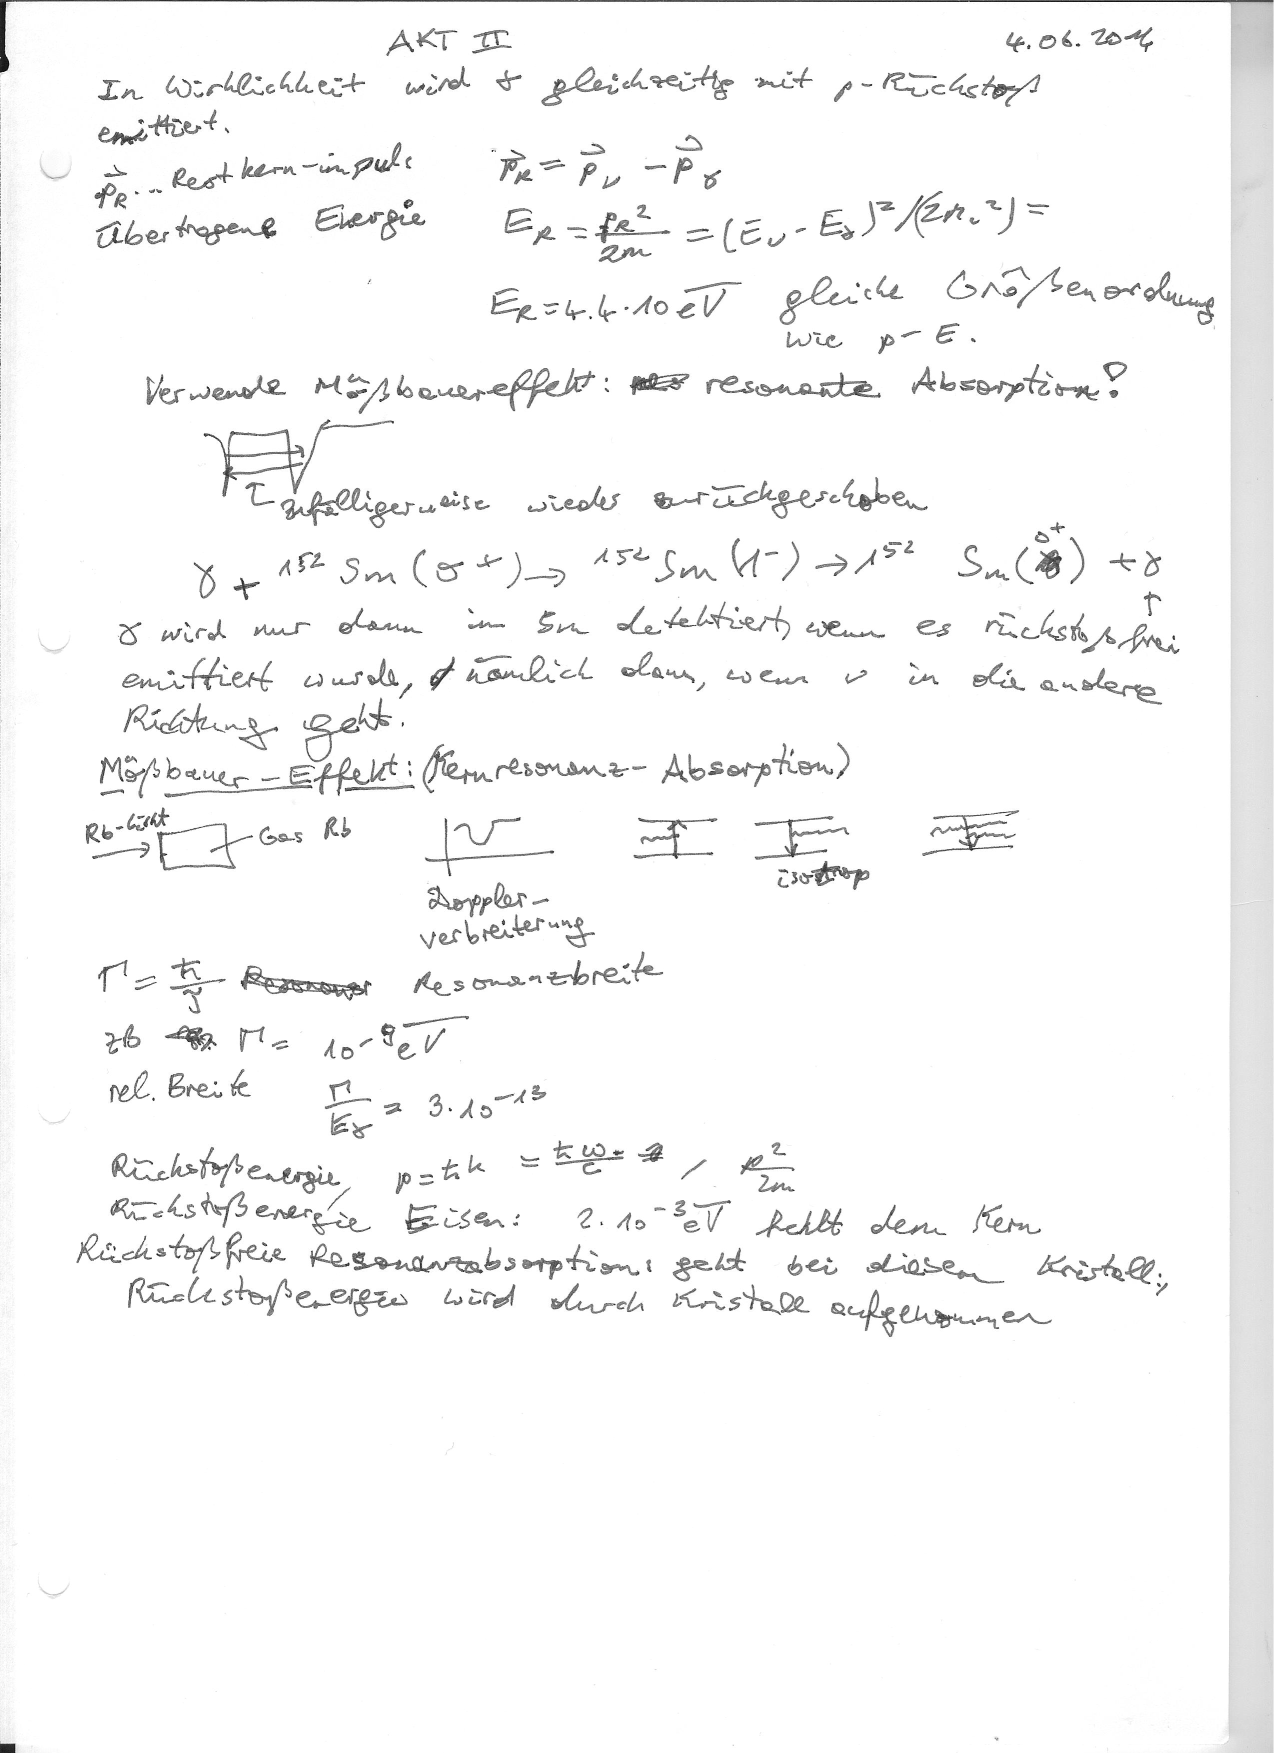 AKT II 4.06.2014
In Wirklichkeit wird γ gleichzeitig mit p-Rückstoß
emittiert.
p⃗_R ... Restkern-impuls p⃗_R = p⃗_ν - p⃗_γ
Übertragene Energie E_R = p_R²/2m = (E_ν - E_γ)²/(2mc²) =
E_R = 4.4 · 10 eV gleiche Größenordnung
wie p-E.
Verwende Mößbauereffekt: resonante Absorption!
zufälligerweise wieder zurückgeschoben
γ + ¹⁵²Sm(0⁺) → ¹⁵²Sm(1⁻) → ¹⁵² Sm(0⁺) + γ
↑
γ wird nur dann im Sm detektiert, wenn es rückstoßfrei
emittiert wurde, nämlich dann, wenn ν in die andere
Richtung geht.
Mößbauer-Effekt: (Kernresonanz-Absorption)
Rb-Licht Gas Rb
isotrop
Doppler-
verbreiterung
Γ = ħ/τ Resonanzbreite
zB Γ = 10⁻⁹ eV
rel. Breite Γ/E_γ = 3·10⁻¹³
Rückstoßenergie, p = ħk = ħω/c , p²/2m
Rückstoßenergie Eisen: 2·10⁻³ eV fehlt dem Kern
Rückstoßfreie Resonanzabsorption: geht bei diesem Kristall;
Rückstoßenergie wird durch Kristall aufgenommen